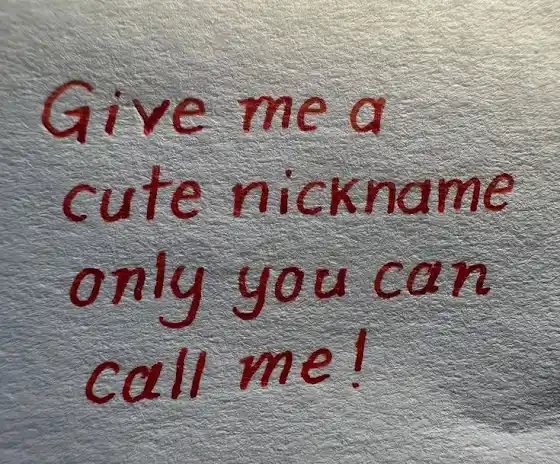 Give me a
cute nickname
only you can
call me!